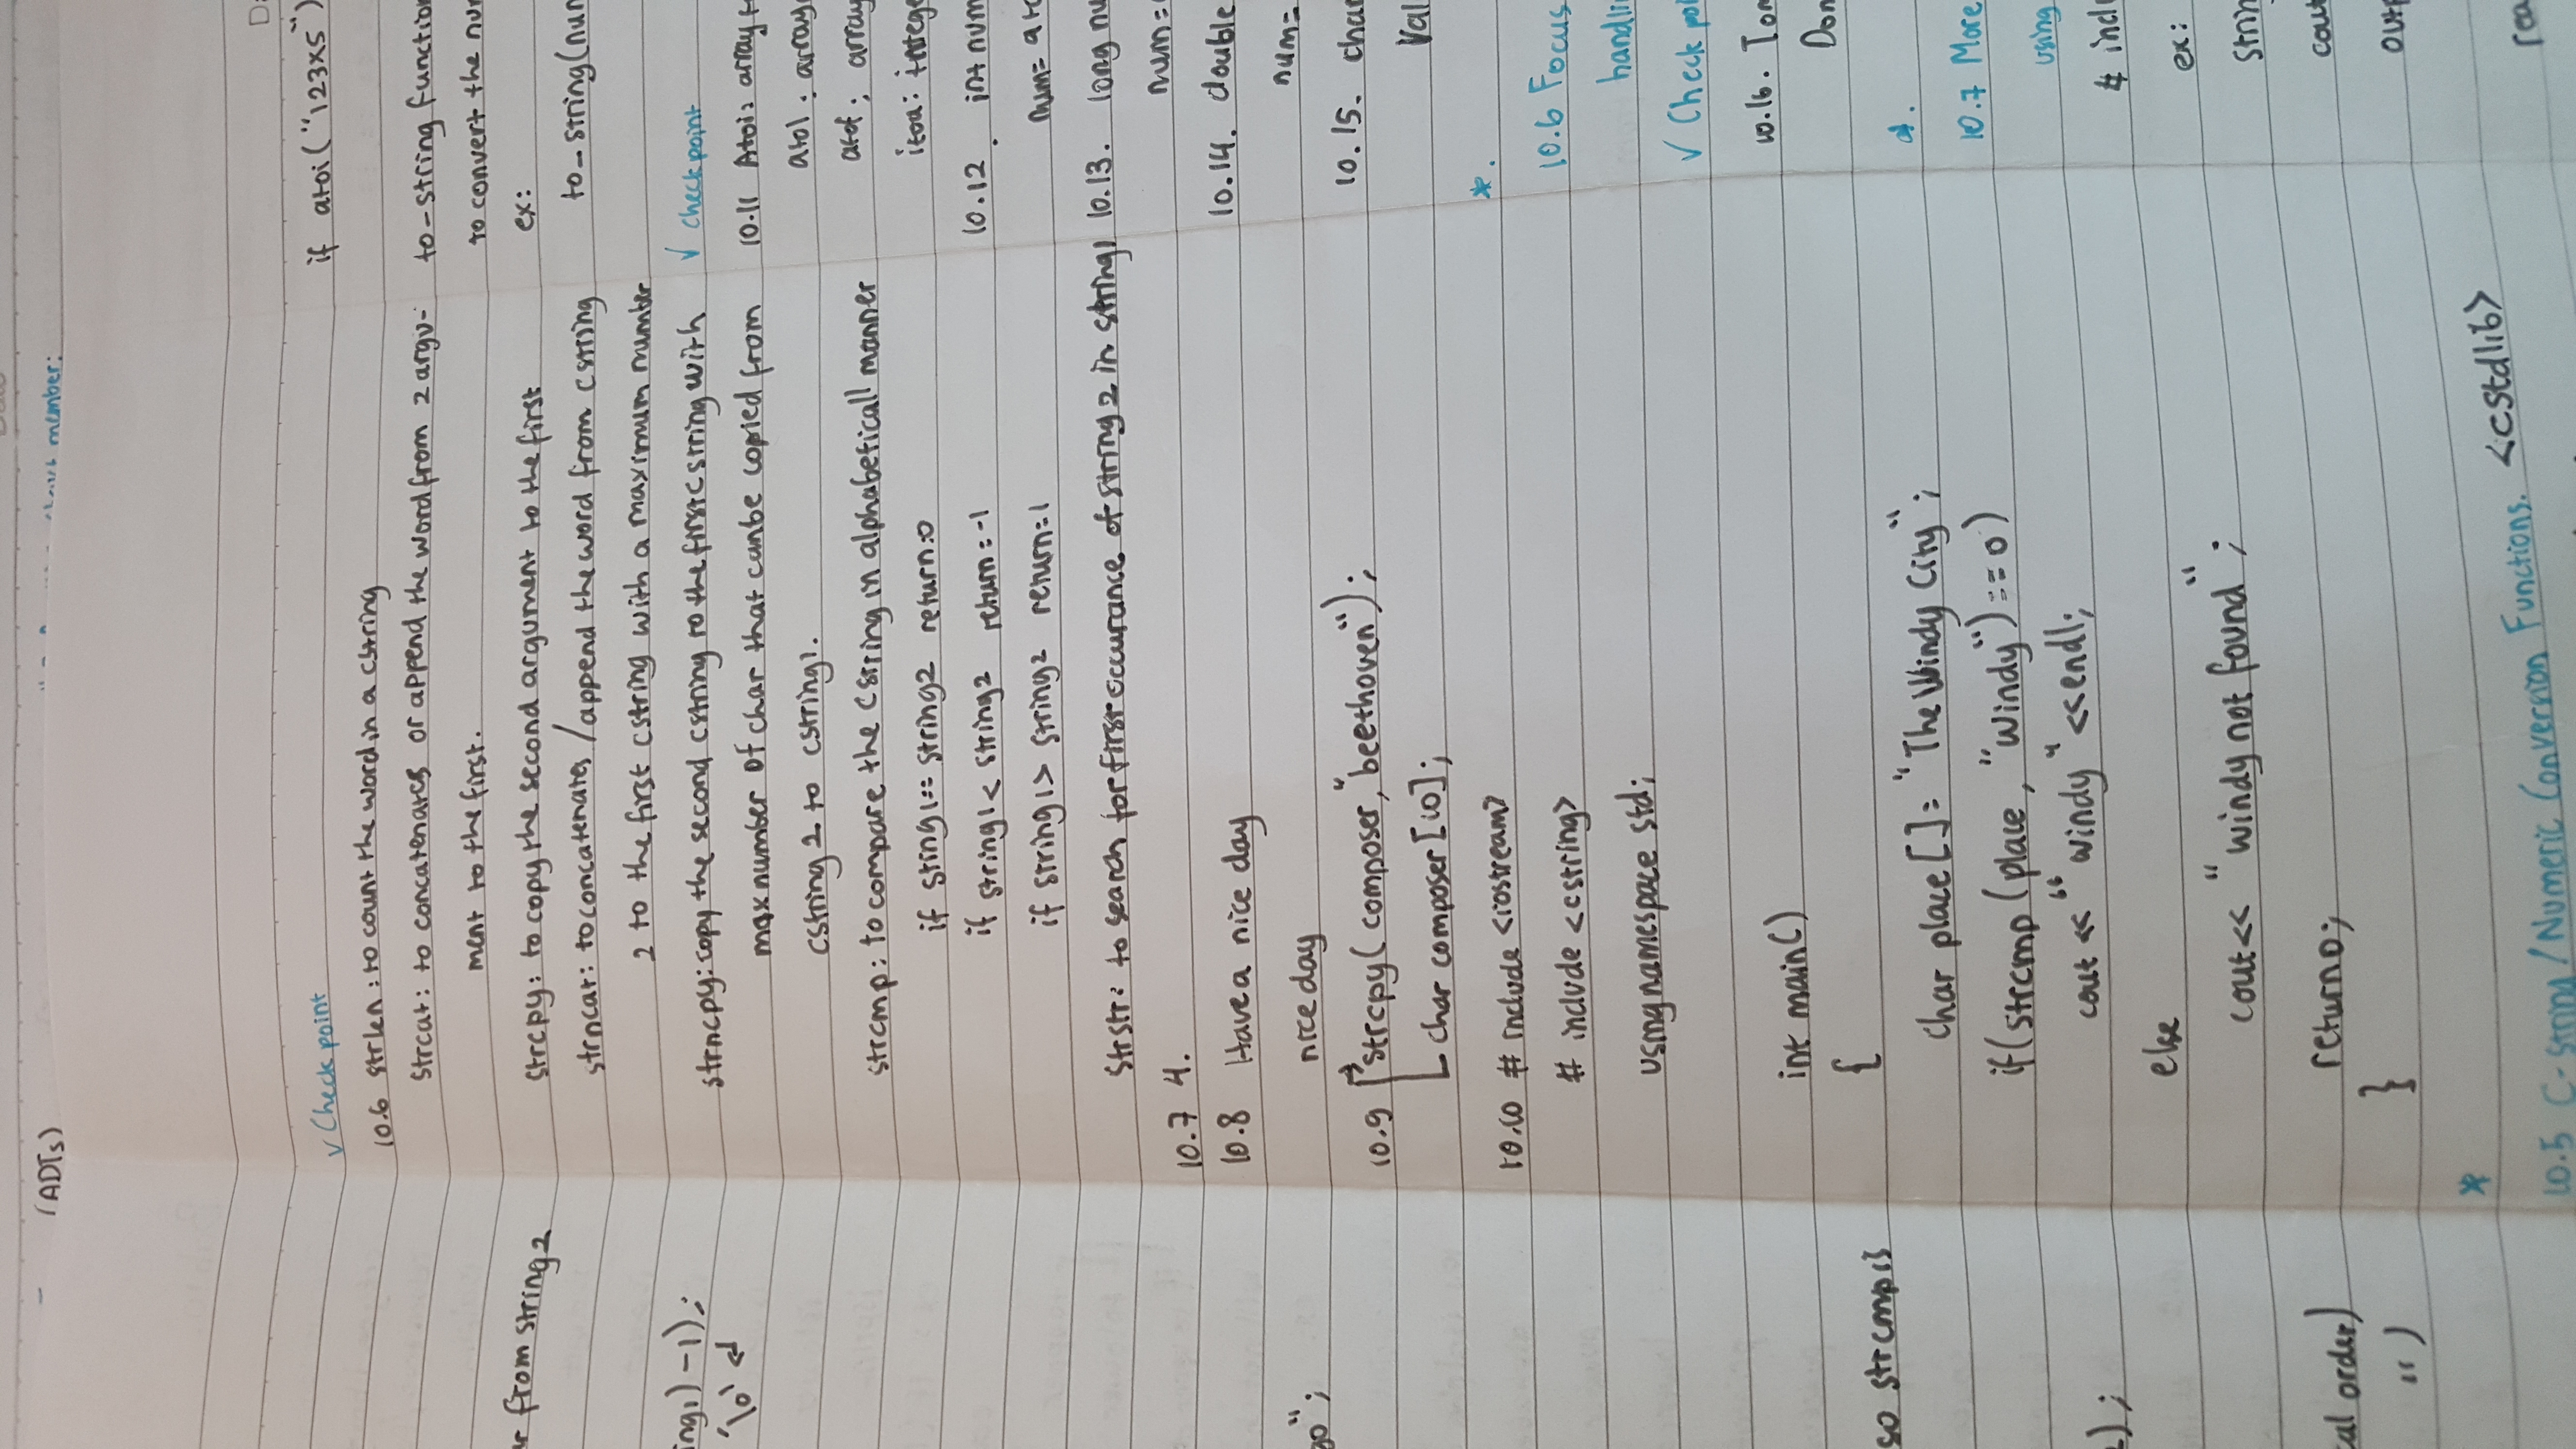 (ADTs)
member:
r from string2
ing1) -1);
'\0' ↵
00";
so strcmp is
2);
cal order)
")
√ Check point
10.6 strlen : to count the word in a cstring
Strcat : to concatenates or append the word from 2 argu-
ment to the first.
strcpy : to copy the second argument to the first
strncat : to concatenates / append the word from cstring
2 to the first cstring with a maximum number
strncpy : copy the second cstring to the first cstring with
max number of char that can be copied from
cstring 2 to cstring1.
strcmp : to compare the cstring in alphabeticall manner
if sting1 == string2 return :0
if string1 < string2 return = -1
if string1 > string2 return = 1
Strstr : to search for first occurance of string 2 in string1
10.7 4.
10.8 Have a nice day
nice day
10.9 strcpy( composer, "beethoven");
char composer [10];
10.10 # include <iostream>
# include <cstring>
using namespace std;
int main()
{
char place [] = "The Windy City";
if (strcmp (place, "Windy") == 0)
cout << "windy" << endl;
else
cout << "windy not found";
return 0;
}
*
10.5 C-string / Numeric Conversion Functions. <cstdlib>
if atoi("123x5")
to-string function
to convert the nu
ex:
to_string(nu
√ check point
10.11 Atoi : array
atol : array
atof : array
itoa : intege
10.12 . int num
num = at
10.13. long nu
num =
10.14. double
num =
10.15. char
Val
*.
10.6 Focus
handli
√ Check poi
10.16. Tom
Don
d.
10.7 More
using
# incl
ex:
strin
cout
outp
rea